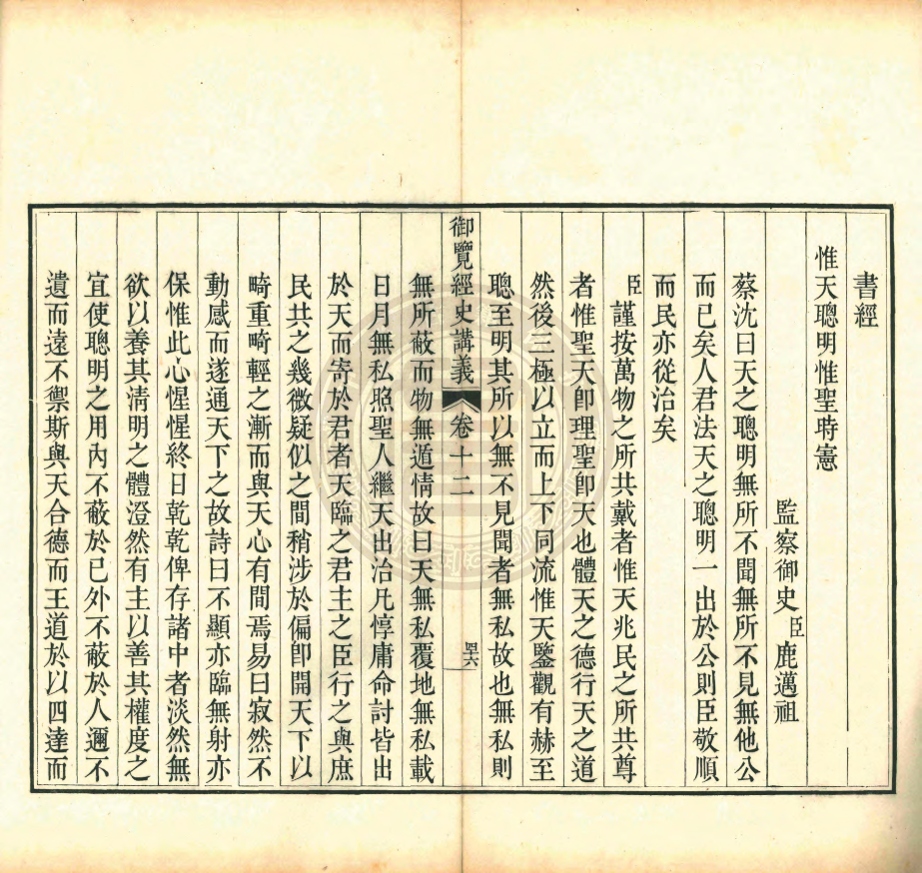 書經
惟天聰明惟聖時憲
監察御史臣鹿邁祖
蔡沈曰天之聰明無所不聞無所不見無他公
而已矣人君法天之聰明一出於公則臣敬順
而民亦從治矣
臣謹按萬物之所共戴者惟天兆民之所共尊
者惟聖天卽理聖卽天也體天之德行天之道
然後三極以立而上下同流惟天鑒觀有赫至
聰至明其所以無不見聞者無私故也無私則
御覽經史講義 卷十二 四六
無所蔽而物無遁情故曰天無私覆地無私載
日月無私照聖人繼天出治凡惇庸命討皆出
於天而寄於君者天臨之君主之臣行之與庶
民共之幾微疑似之間稍涉於偏卽開天下以
畸重畸輕之漸而與天心有間焉易曰寂然不
動感而遂通天下之故詩曰不顯亦臨無射亦
保惟此心惺惺終日乾乾俾存諸中者淡然無
欲以養其清明之體澄然有主以善其權度之
宜使聰明之用內不蔽於已外不蔽於人邇不
遺而遠不禦斯與天合德而王道於以四達而